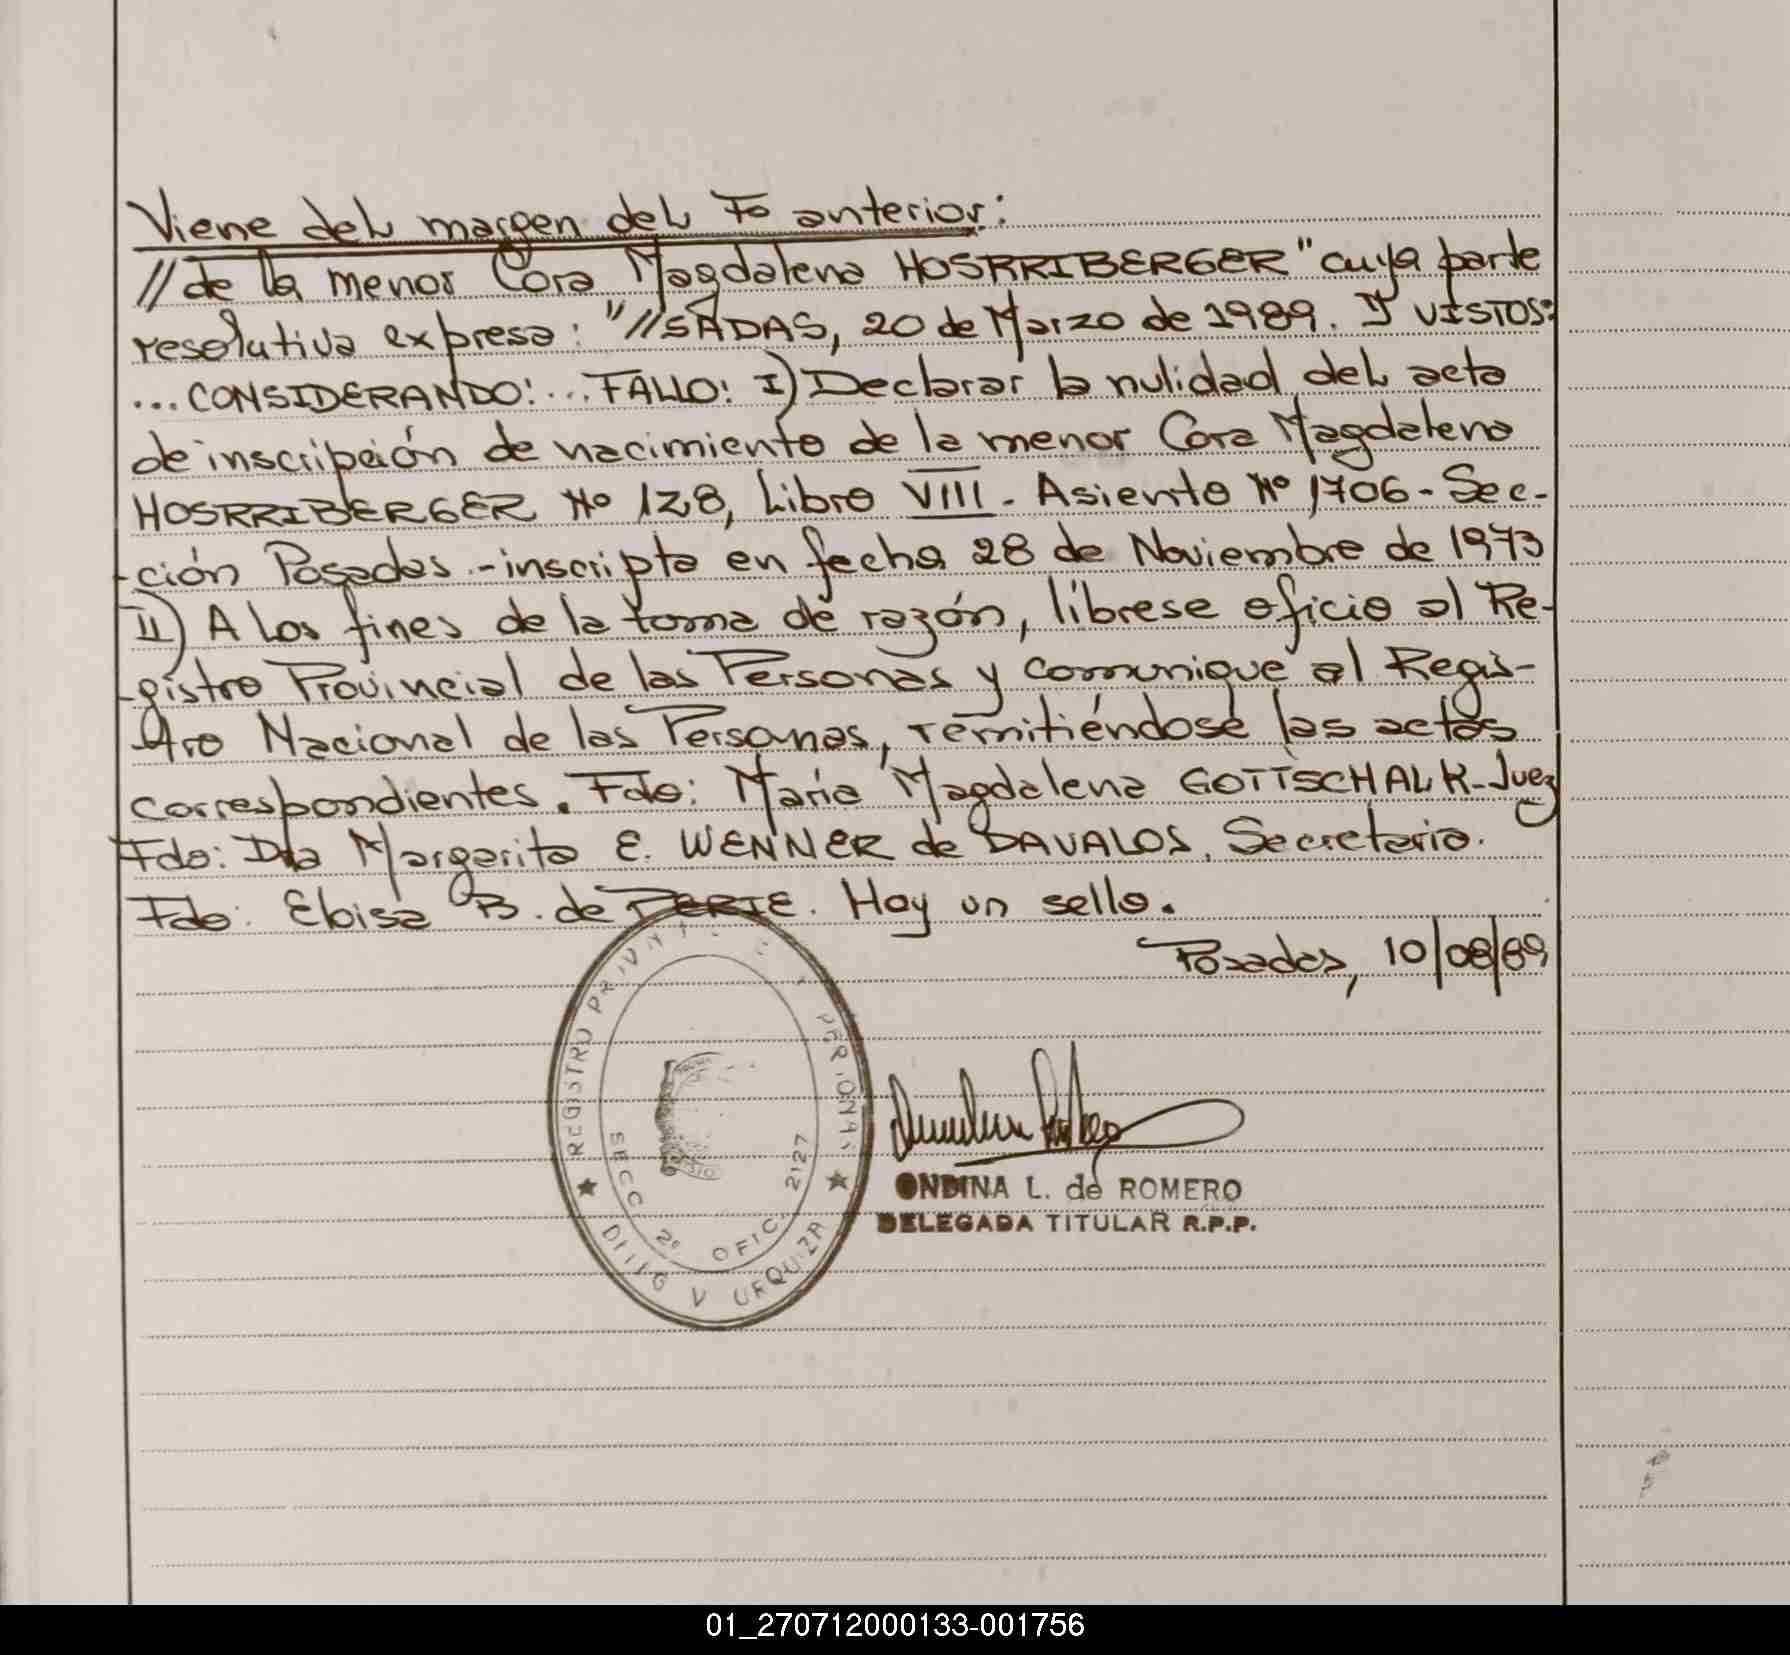 Viene del margen del Fº anterior:
//de la menor Cora Magdalena HOSRRIBERGER" cuya parte
resolutiva expresa: "//SADAS, 20 de Marzo de 1989. Y VISTOS:
...CONSIDERANDO:...FALLO: I) Declarar la nulidad del acta
de inscripción de nacimiento de la menor Cora Magdalena
HOSRRIBERGER Nº 128, Libro VIII. Asiento Nº 1706- Sec-
-ción Posadas.-inscripta en fecha 28 de Noviembre de 1973
II) A los fines de la toma de razón, líbrese oficio al Re-
-gistro Provincial de las Personas y comunique al Regis-
-tro Nacional de las Personas, remitiéndose las actas
correspondientes. Fdo: María Magdalena GOTTSCHALK-Juez
Fdo: Dra Margarita E. WENNER de DAVALOS. Secretaria.
Fdo: Eloisa B. de PERIE. Hay un sello.
Posadas, 10/08/89
REGISTRO PERSONAS
SECC 2º OFIC. 2127
V URQUIZA
ONDINA L. de ROMERO
DELEGADA TITULAR R.P.P.
01_270712000133-001756